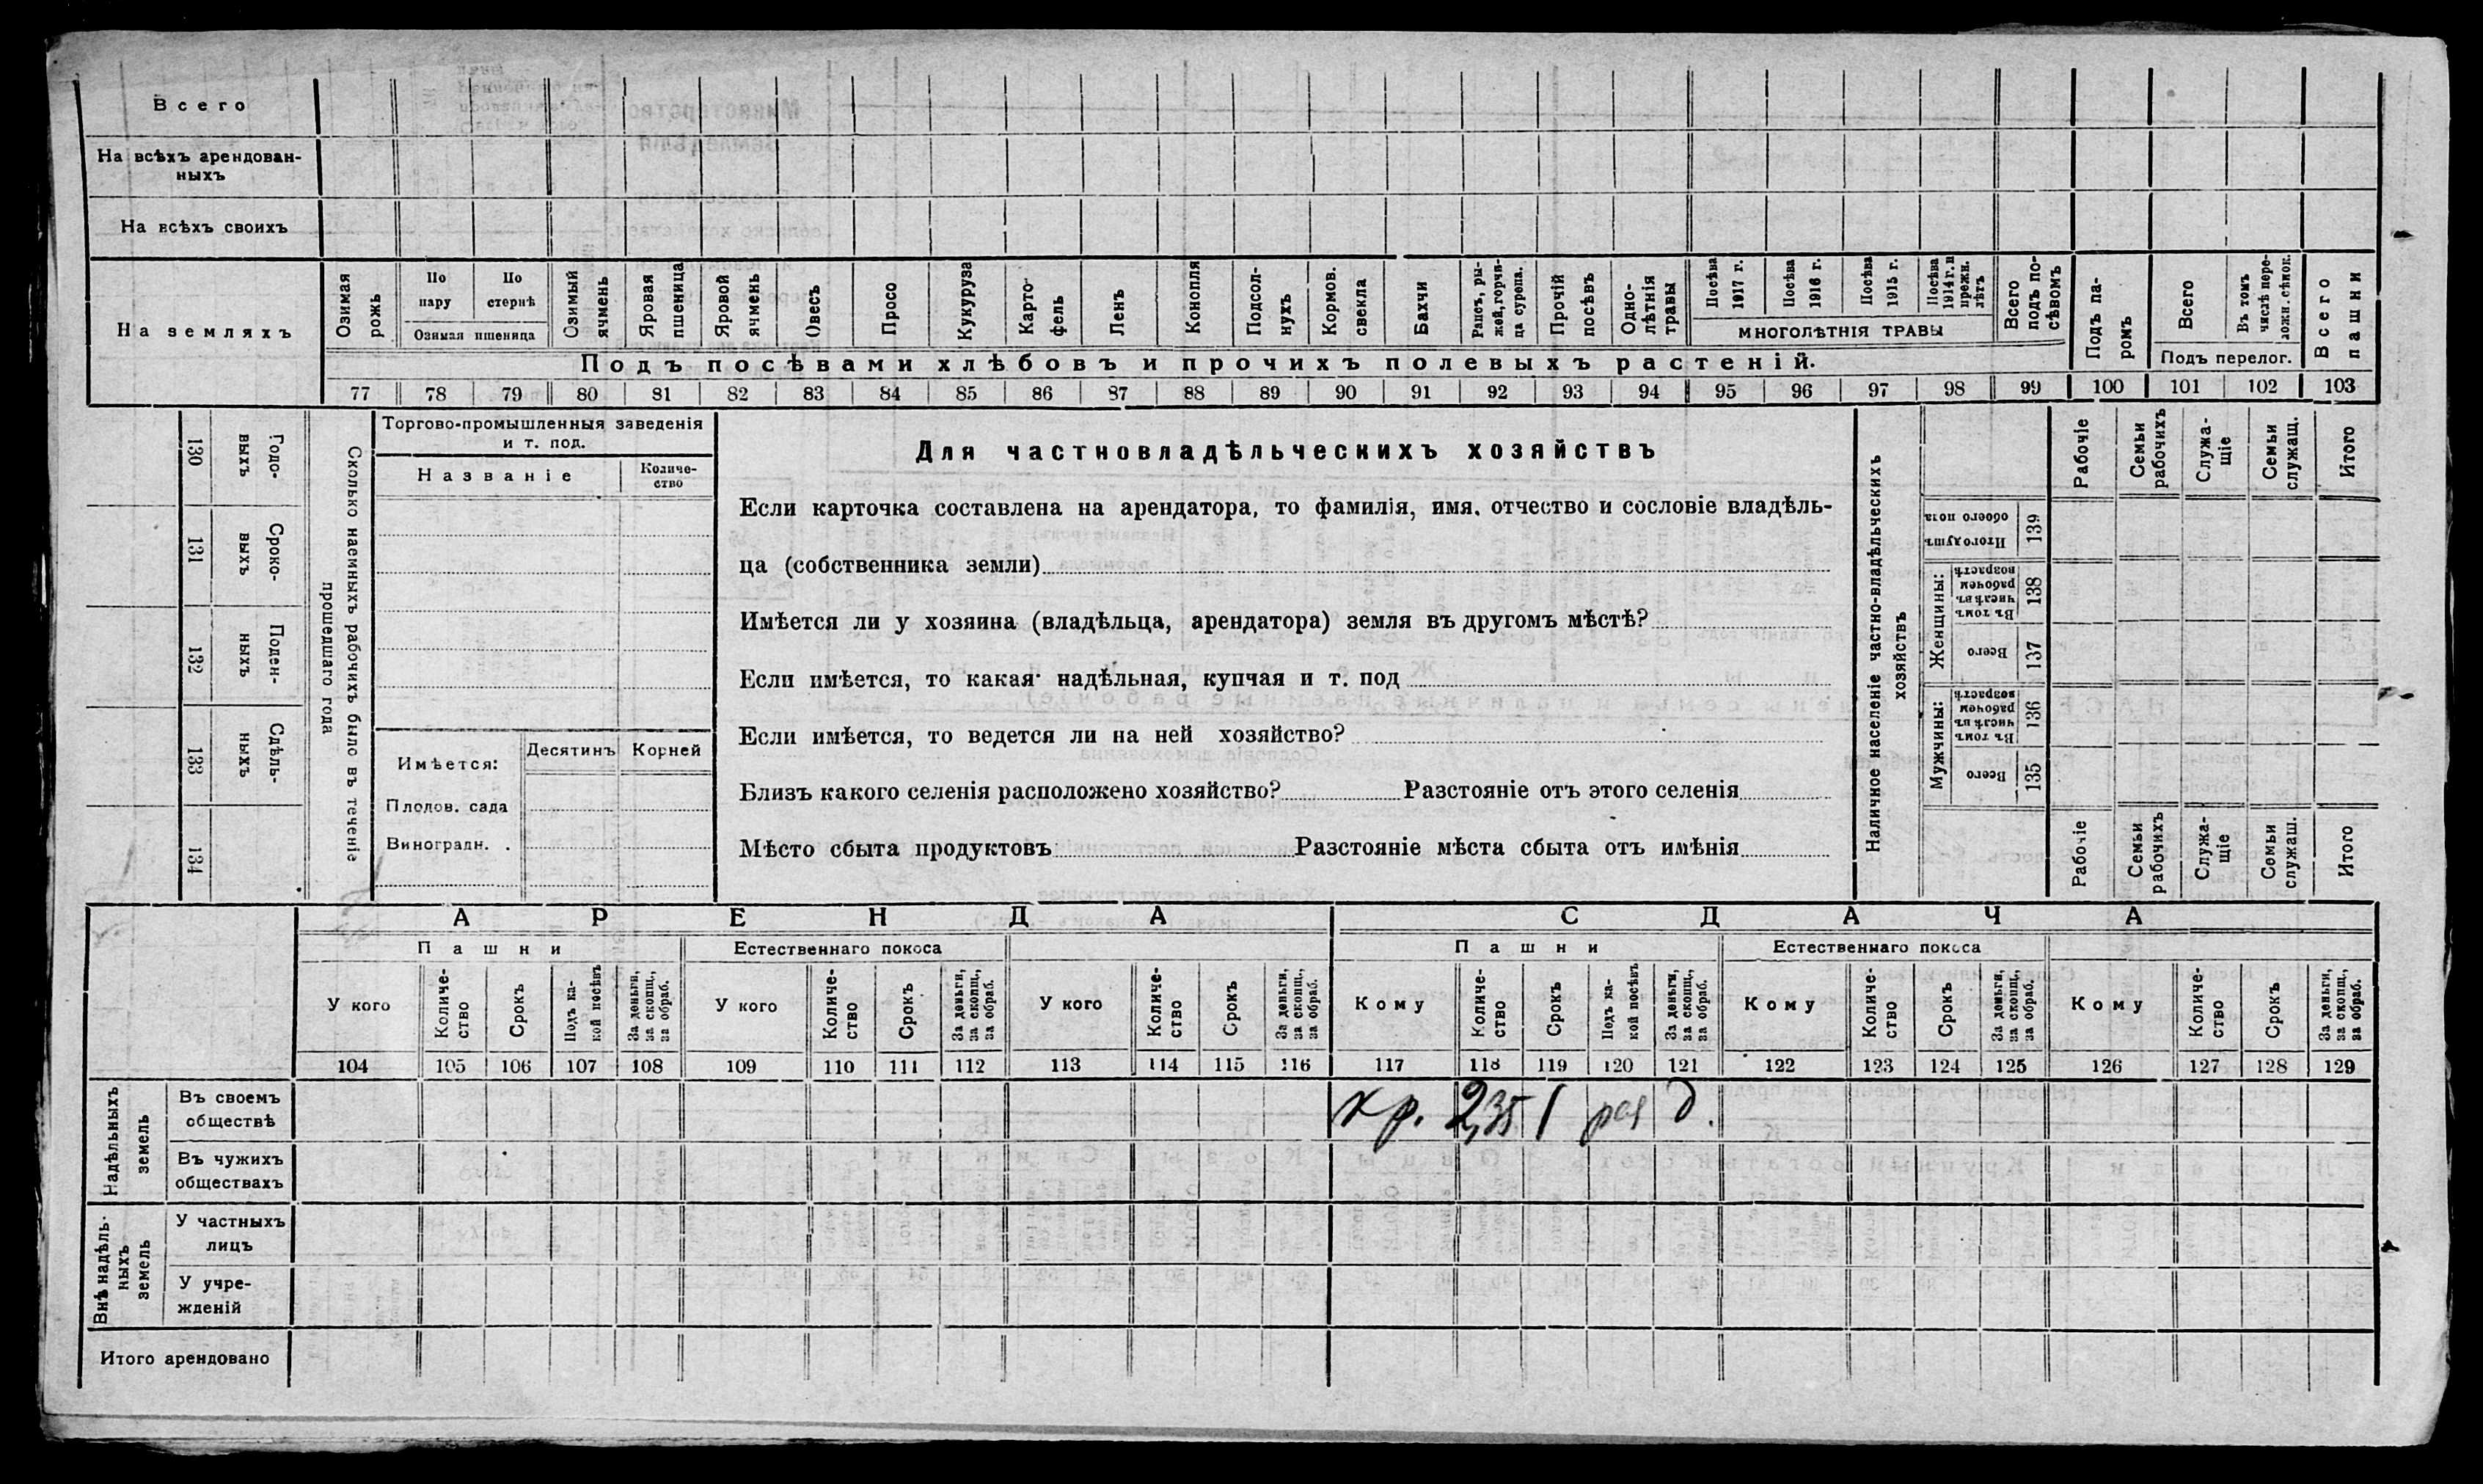 Всего
На всѣхъ арендован-
ныхъ
На всѣхъ своихъ
На земляхъ
Озимая рожь
По пару
По стернѣ
Озимая пшеница
Озимый ячмень
Яровая пшеница
Яровой ячмень
Овесъ
Просо
Кукуруза
Карто-
фель
Ленъ
Конопля
Подсол-
нухъ
Кормов. свекла
Бахчи
Рапсъ, ры-
жей, горчи-
ца сурепа.
Прочій посѣвъ
Одно-
лѣтнія
травы
Посѣва 1917 г.
Посѣва 1916 г.
Посѣва 1915 г.
Посѣва 1914 г. и прежн. лѣтъ
МНОГОЛѢТНІЯ ТРАВЫ
Всего подъ по-
сѣвомъ
Подъ посѣвами хлѣбовъ и прочихъ полевыхъ растеній.
Подъ па-
ромъ
Всего
Въ томъ числѣ пере-
ложн. сѣнок.
Подъ перелог.
Всего пашни
77 78 79 80 81 82 83 84 85 86 87 88 89 90 91 92 93 94 95 96 97 98 99 100 101 102 103
130 Годо-
выхъ
131 Сроко-
выхъ
132 Поден-
ныхъ
133 Сдѣль-
ныхъ
134
Сколько наемныхъ рабочихъ было въ теченіе
прошедшаго года
Торгово-промышленныя заведенія
и т. под.
Названіе
Количе-
ство
Имѣется:
Десятинъ
Корней
Плодов. сада
Виноградн. .
Для частновладѣльческихъ хозяйствъ
Если карточка составлена на арендатора, то фамилія, имя, отчество и сословіе владѣль-
ца (собственника земли)
Имѣется ли у хозяина (владѣльца, арендатора) земля въ другомъ мѣстѣ?
Если имѣется, то какая· надѣльная, купчая и т. под
Если имѣется, то ведется ли на ней хозяйство?
Близъ какого селенія расположено хозяйство? Разстояніе отъ этого селенія
Мѣсто сбыта продуктовъ Разстояніе мѣста сбыта отъ имѣнія
Наличное населеніе частно-владѣльческихъ
хозяйствъ
Рабочіе
Семьи рабочихъ
Служа-
щіе
Семьи служащ.
Итого
Итого душъ обоего пола 139
Женщины:
Въ томъ числѣ въ рабочемъ возрастѣ 138
Всего 137
Мужчины:
Въ томъ числѣ въ рабочемъ возрастѣ 136
Всего 135
Рабочіе
Семьи рабочихъ
Служа-
щіе
Семьи служащ.
Итого
АРЕНДА
СДАЧА
Пашни
Естественнаго покоса
Пашни
Естественнаго покоса
У кого
Количе-
ство
Срокъ
Подъ ка-
кой посѣвъ
За деньги, за скопщ., за обраб.
У кого
Количе-
ство
Срокъ
За деньги, за скопщ., за обраб.
У кого
Количе-
ство
Срокъ
За деньги, за скопщ., за обраб.
Кому
Количе-
ство
Срокъ
Подъ ка-
кой посѣвъ
За деньги, за скопщ., за обраб.
Кому
Количе-
ство
Срокъ
За деньги, за скопщ., за обраб.
Кому
Количе-
ство
Срокъ
За деньги, за скопщ., за обраб.
104 105 106 107 108 109 110 111 112 113 114 115 116 117 118 119 120 121 122 123 124 125 126 127 128 129
Надѣльныхъ
земель
Въ своемъ
обществѣ
кр. 2,35 1 д.
Въ чужихъ
обществахъ
Внѣ надѣль-
ныхъ
земель
У частныхъ
лицъ
У учре-
жденій
Итого арендовано